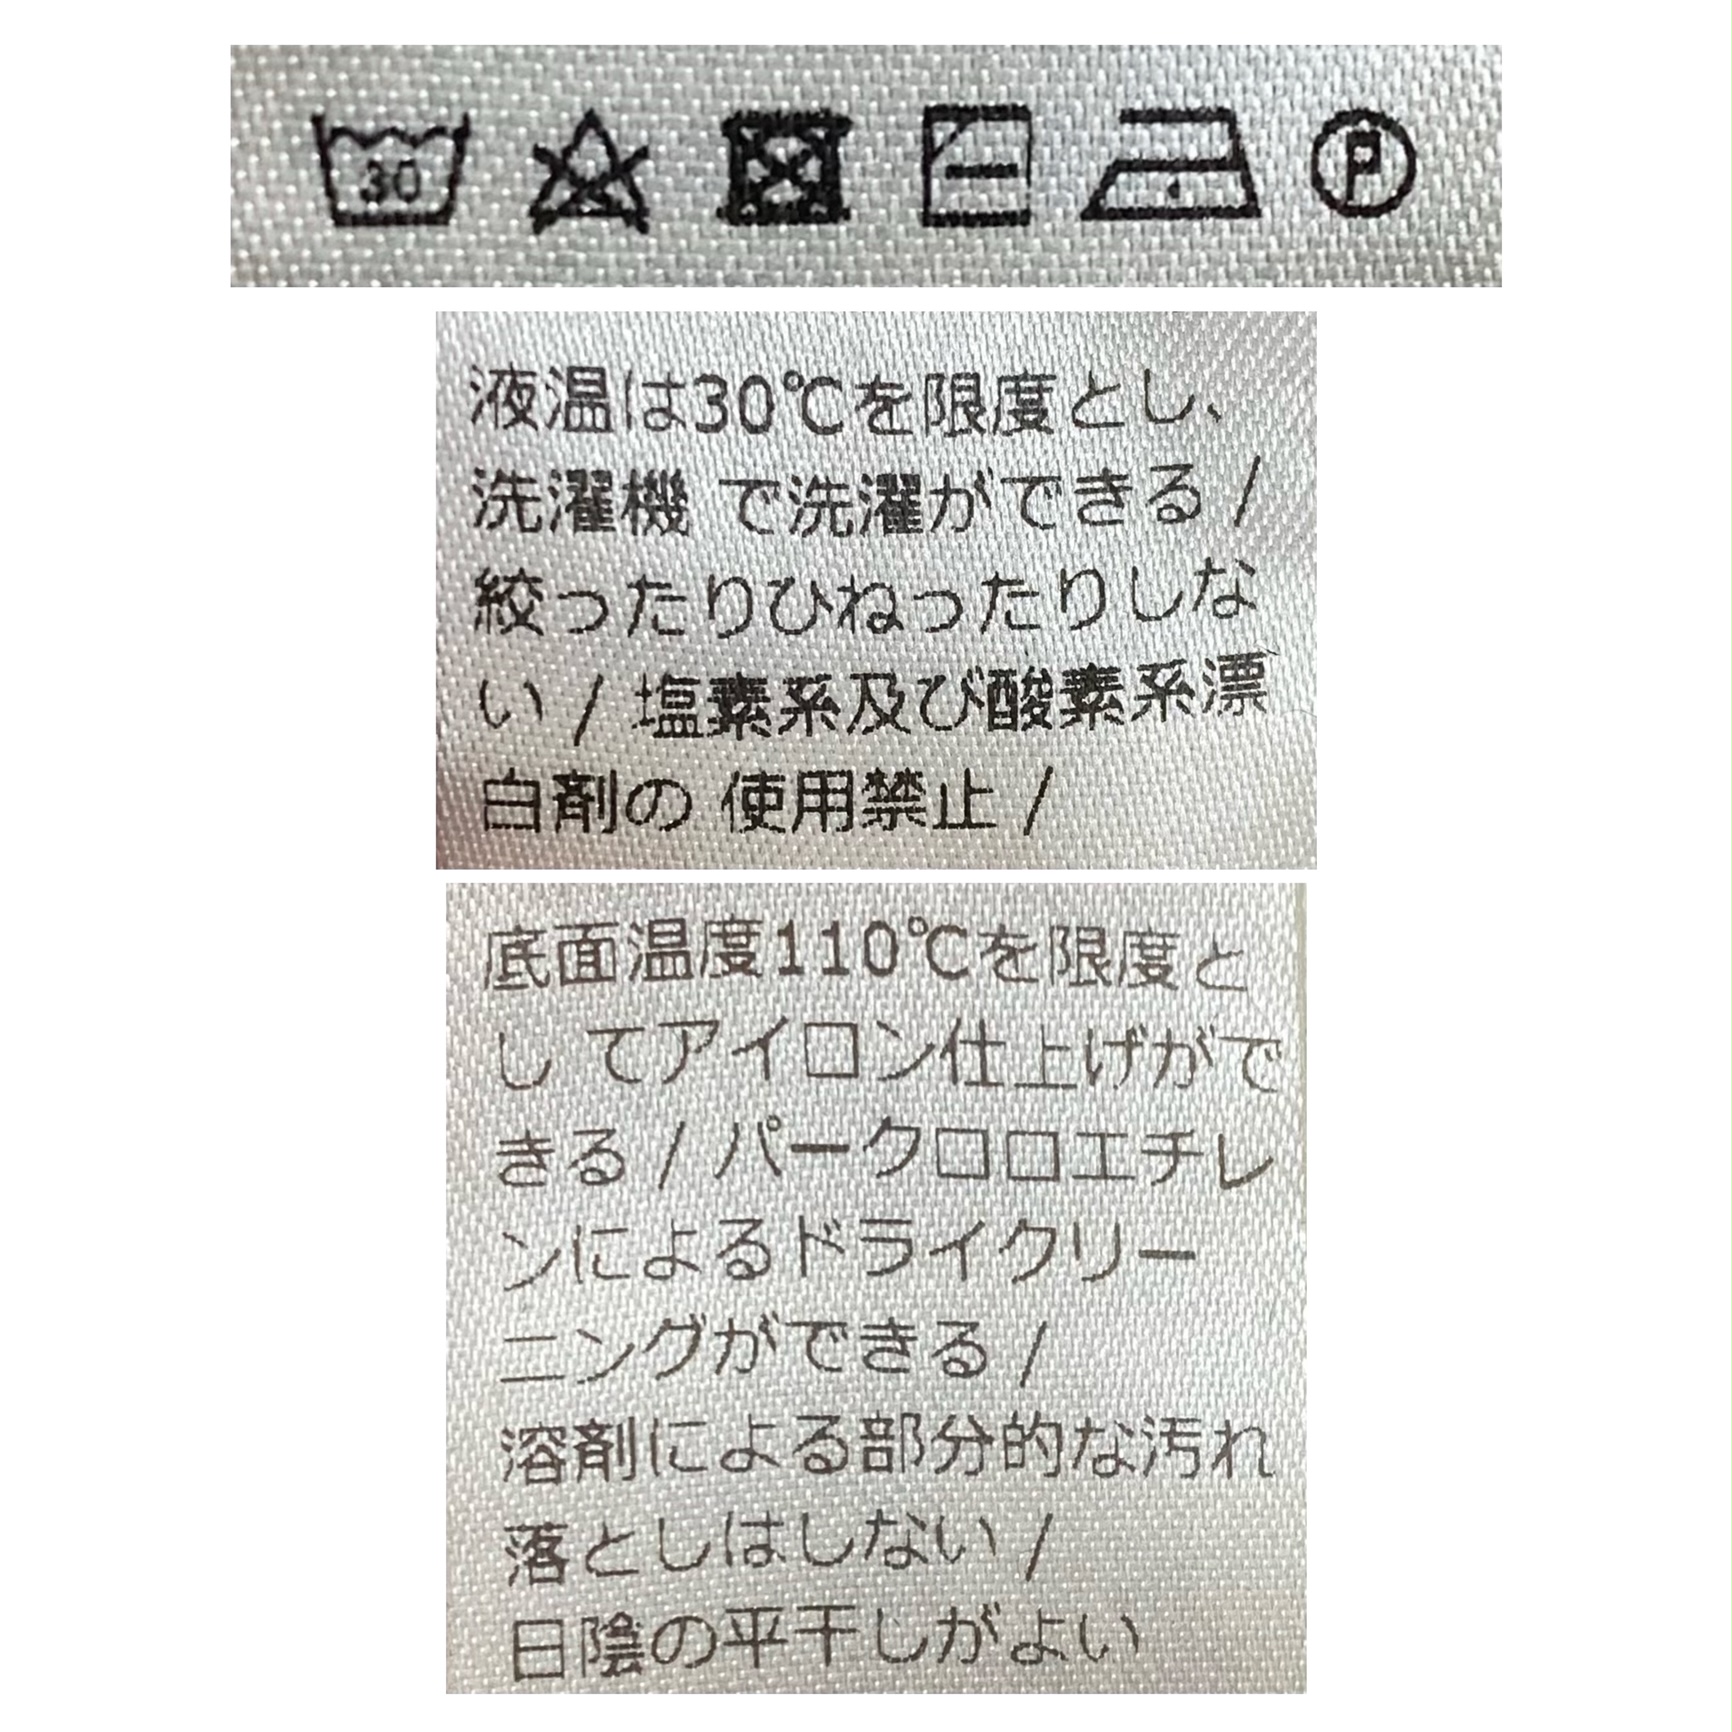 30
P
液温は30℃を限度とし、
洗濯機 で洗濯ができる /
絞ったりひねったりしな
い / 塩素系及び酸素系漂
白剤の 使用禁止 /
底面温度110℃を限度と
し てアイロン仕上げがで
きる / パークロロエチレ
ンによるドライクリー
ニングができる /
溶剤による部分的な汚れ
落としはしない /
日陰の平干しがよい